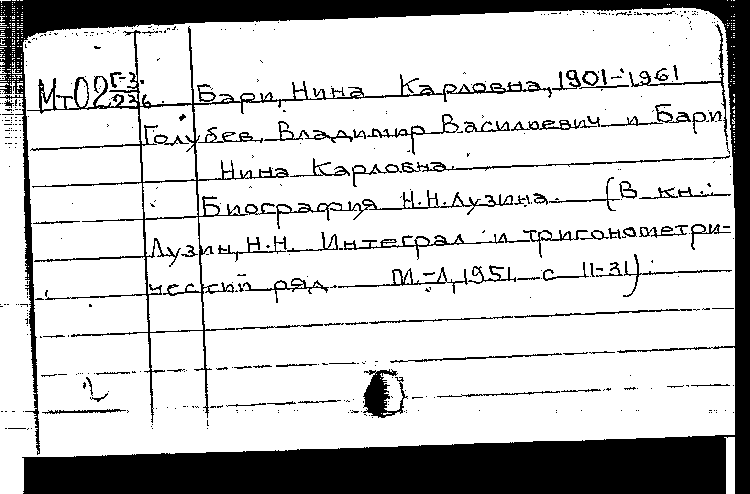 МтО2 Г-3. 236. Бари, Нина Карловна, 1901-1961
Голубев, Владимир Васильевич и Бари
Нина Карловна.
Биография Н.Н.Лузина. (В кн.:
Лузин, Н.Н. Интеграл и тригонометри-
ческий ряд. М.-Л, 1951. с 11-31).
2